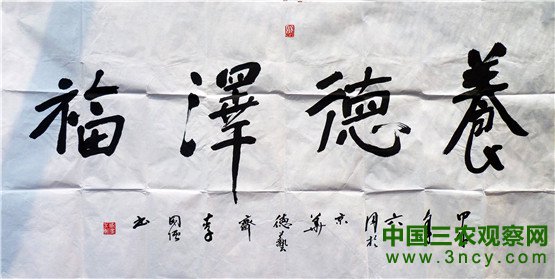 養德澤福
甲年六月於京華德藝齋李国强书
中国三农观察网
www.3ncy.com